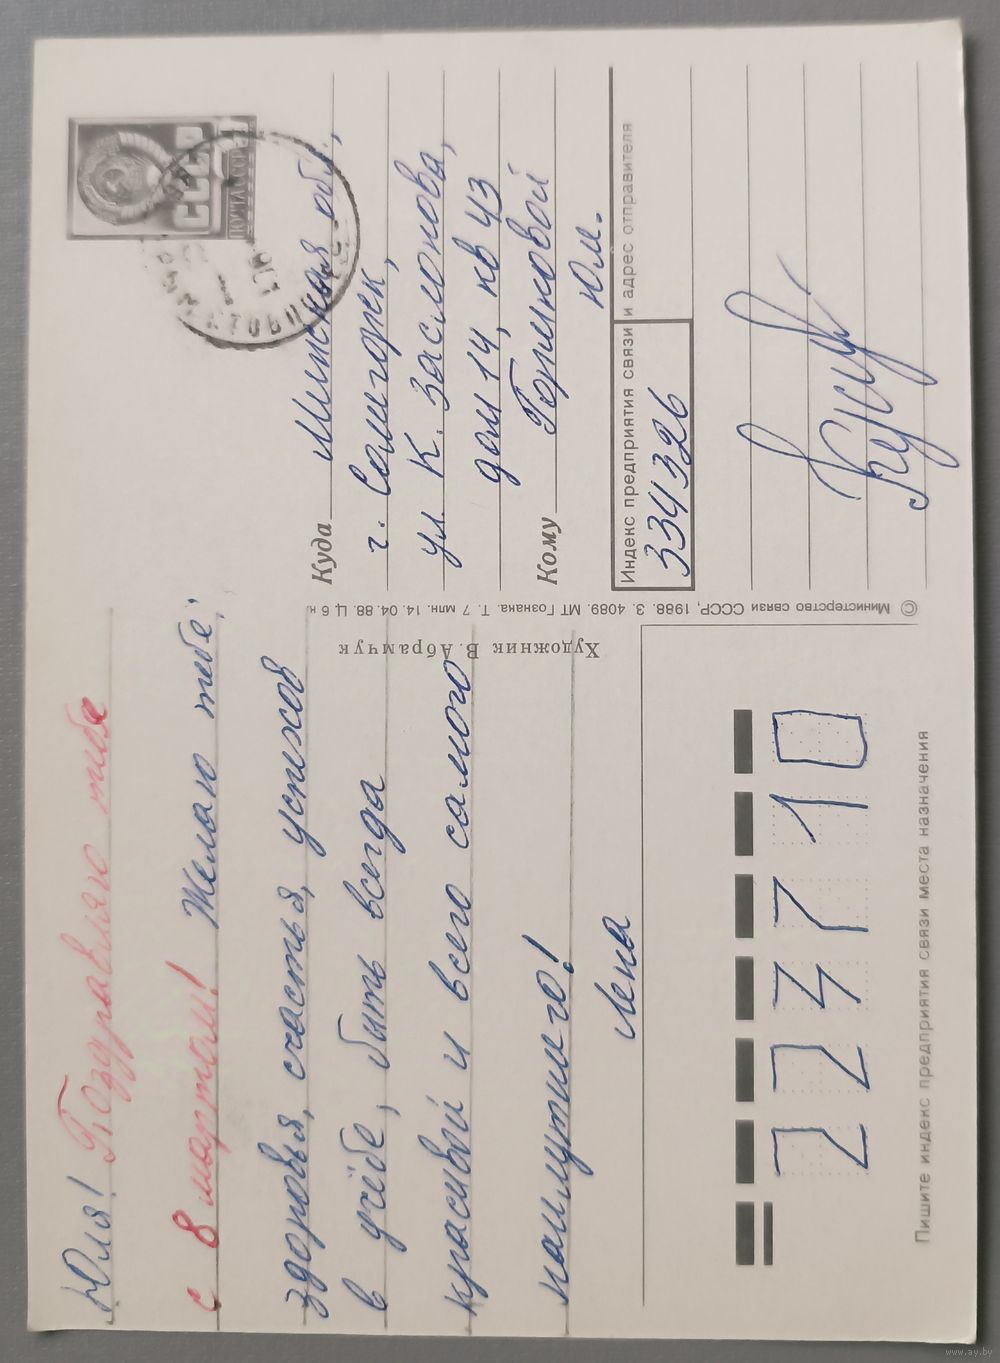 Юля! Поздравляю тебя
с 8 мартом! Желаю тебе:
здоровья, счастья, успехов
в учёбе, быть всегда
красивой и всего самого
наилучшего!
Лена
СССР
ПОЧТА СССР
Куда Минская обл.,
г. Солигорск,
ул. К. Заслонова,
дом 14, кв 43
Кому Горшковой
Юл.
Индекс предприятия связи и адрес отправителя
334326
© Министерство связи СССР, 1988. З. 4089. МТ Гознака. Т. 7 млн. 14. 04. 88. Ц. 6 к.
Художник В. Абрамчук
223710
Пишите индекс предприятия связи места назначения
www.ay.by